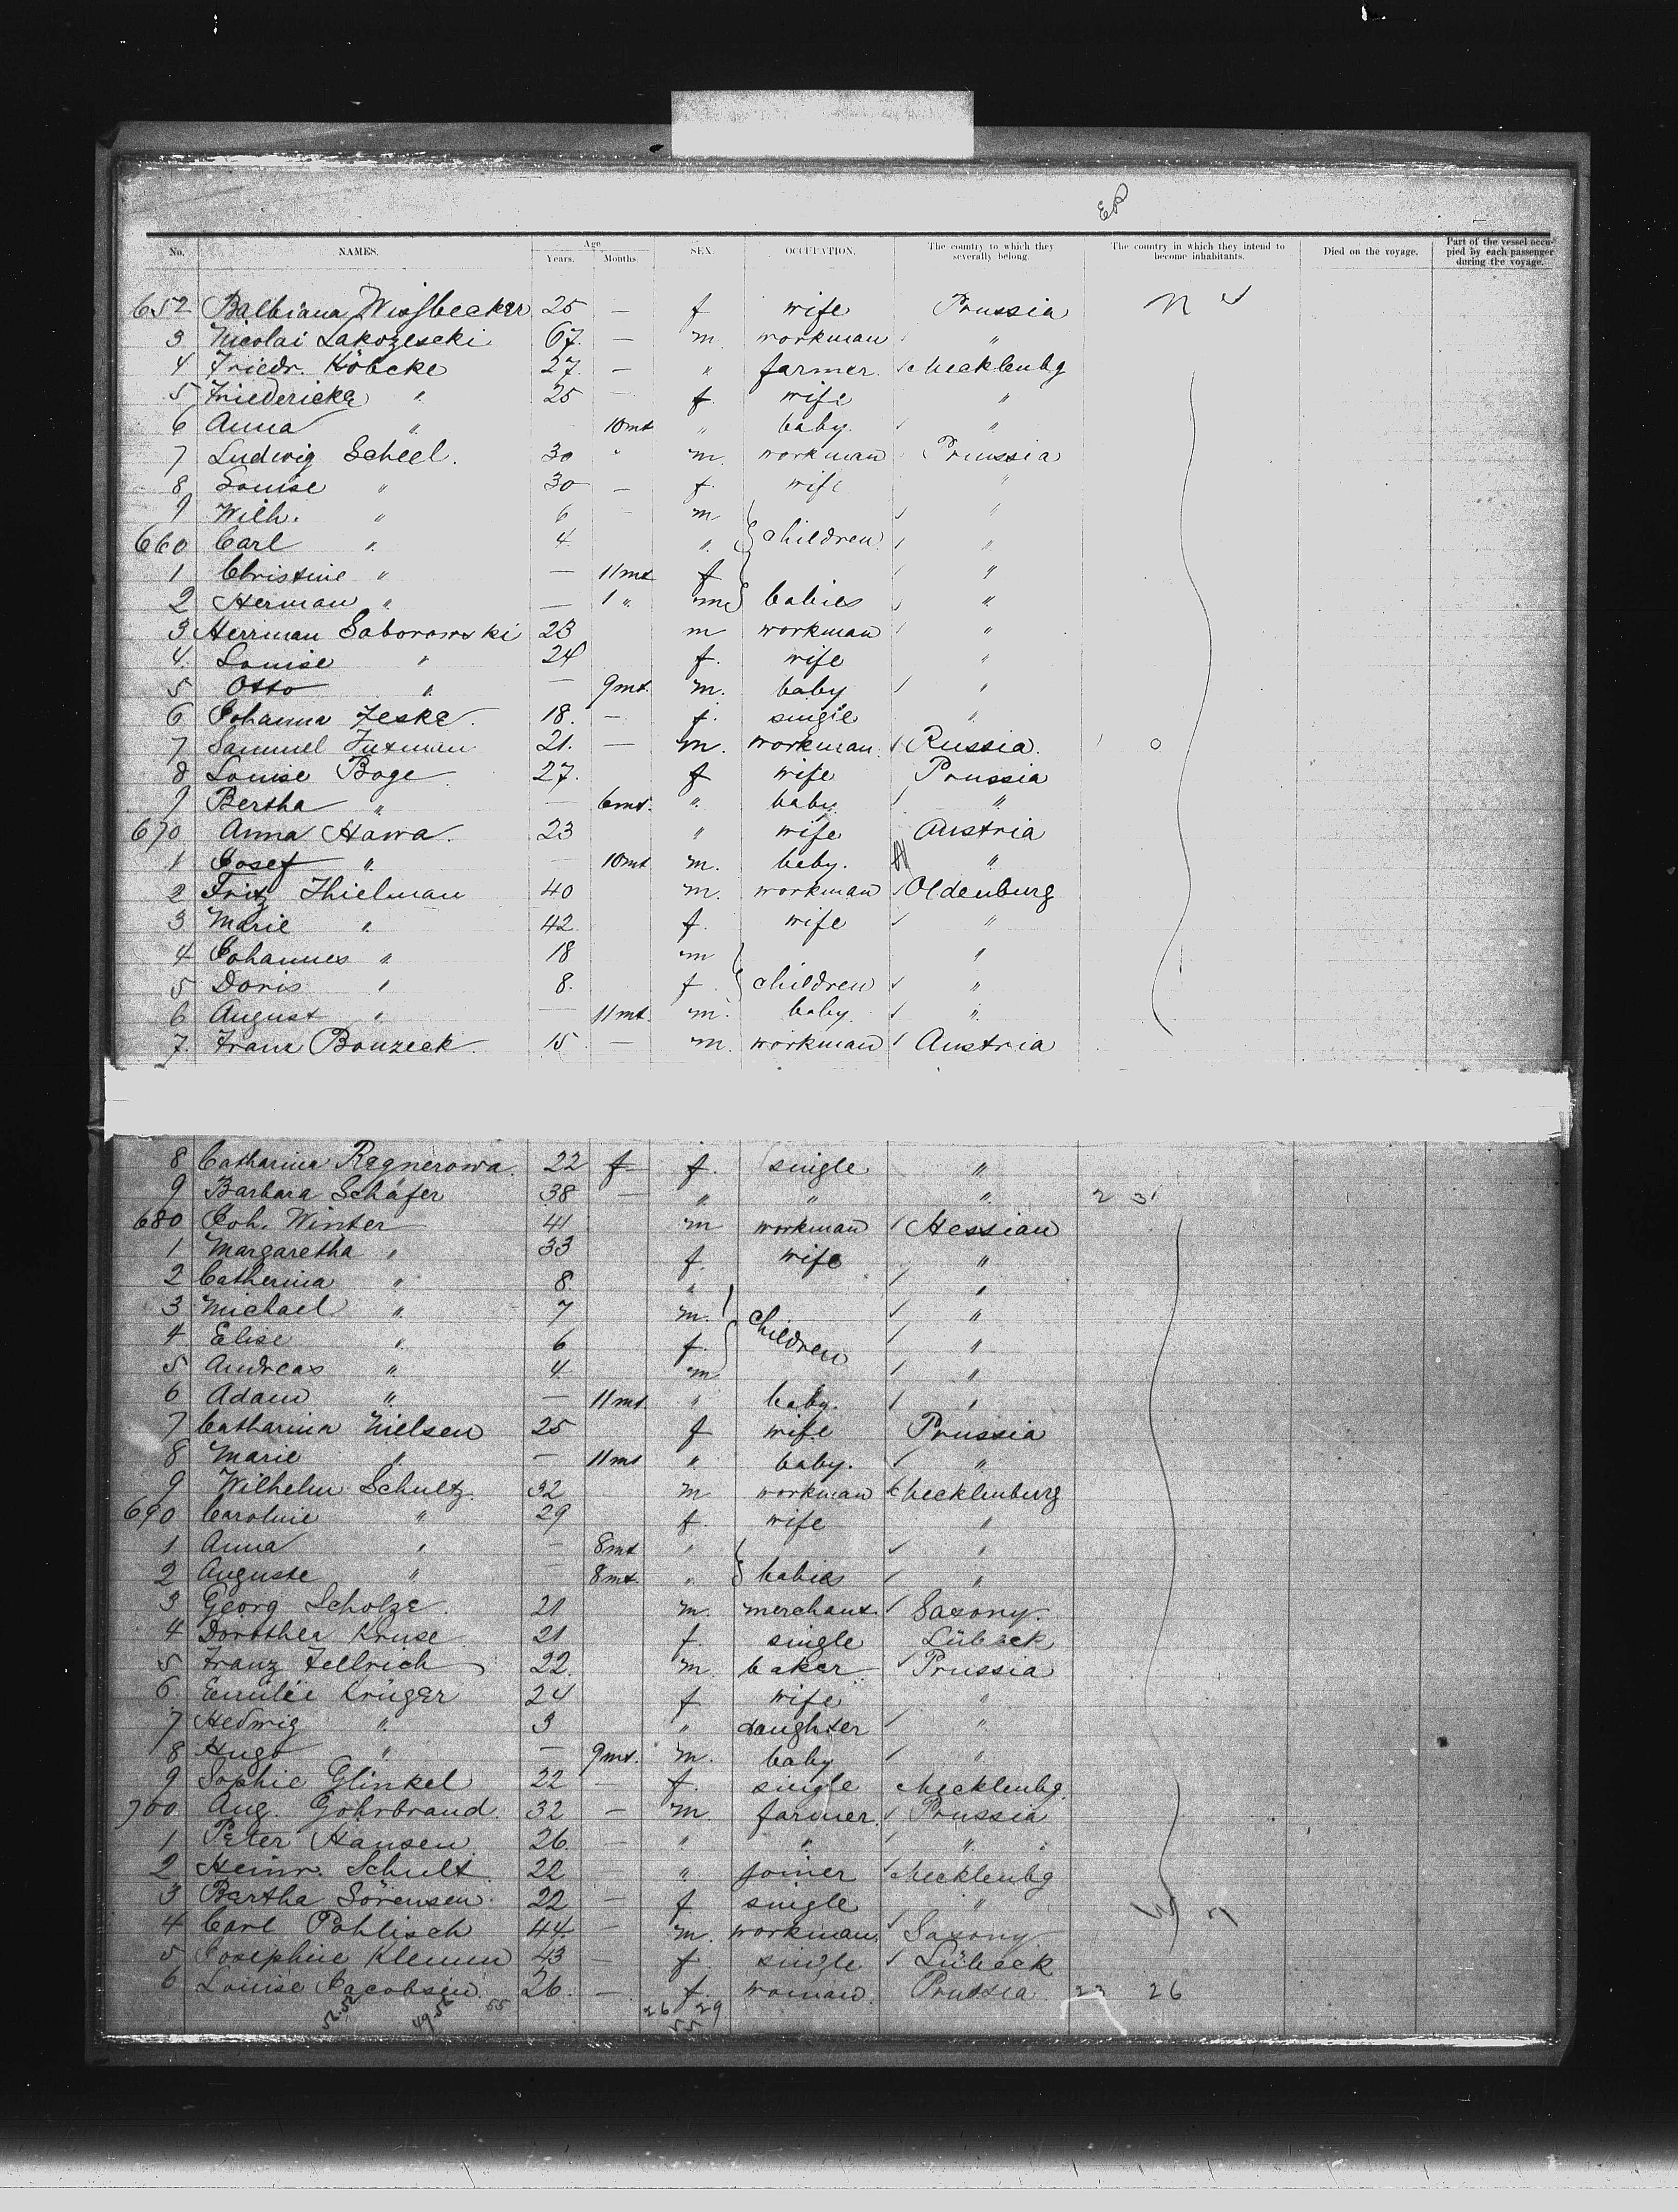 No. NAMES. Age Years. Months. SEX. OCCUPATION. The country to which they severally belong. The country in which they intend to become inhabitants. Died on the voyage. Part of the vessel occupied by each passenger during the voyage.
652 Balbiana Wissbecker 25 — f wife Prussia
3 Nicolai Lakozescki 67. — m workman "
4 Friedr. Köbcke 27. — " farmer. Mecklenbg
5 Friedericke " 25 — f wife "
6 Anna " 10mt " baby. "
7 Ludwig Scheel. 30 " m. workman Prussia
8 Louise " 30 — f. wife "
9 Wilh. " 6 — m "
660 Carl " 4 " children "
1 Christine " — 11mt f "
2 Herman " — 1 " m babies "
3 Herrman Saborowski 23 m workman "
4. Louise " 24 f. wife "
5 Otto " — 9mt. m. baby "
6 Johanna Jeske. 18. — f. single "
7 Samuel Jutman 21. — m. workman. Russia.
8 Louise Boge 27. f wife Prussia
9 Bertha " — 6mt. " baby "
670 Anna Hawa. 23 " wife Austria
1 Josef " — 10mt m. baby. "
2 Fritz Thielman 40 m. workman Oldenburg
3 Marie " 42. f. wife "
4 Johannes " 18 m "
5 Doris " 8. f. children "
6 August " — 11mt. m. baby. "
7. Franz Bouzeck. 15 — m. workman Austria
8 Catharina Regnerowa. 22 f f. single "
9 Barbara Schäfer 38 — " " " 2 3
680 Joh. Winter 41 m workman Hessian
1 Margaretha " 33 f. wife "
2 Catherina " 8 " "
3 Michael " 7 m. "
4 Elise " 6 f. children "
5 Andreas " 4 m "
6 Adam " — 11mt. " baby. "
7 Catharina Nielsen 25 f wife Prussia
8 Marie " — 11mt " baby. "
9 Wilhelm Schultz. 32 m workman Mecklenburg
690 Caroline " 29 f. wife "
1 Anna " — 8mt " "
2 Auguste " — 8mt. " babies "
3 Georg Scholze. 21 m. merchant. Saxony.
4 Dorothea Kruse 21 f. single Lübeck
5 Franz Fellrich 22. m. baker Prussia
6. Emilie Krüger 24 f wife "
7 Hedwig " 3 " daughter "
8 Hugo " — 9mt. m. baby "
9 Sophie Glinkel 22 — f. single Mecklenbg.
700 Aug. Gohrbrand 32 — m. farmer. Prussia
1 Peter Hansen 26. — " " "
2 Heinr. Schult 22 — " joiner Mecklenbg
3 Bertha Sörensen. 22 — f single "
4 Carl Pohlisch 44. — m. workman. Saxony
5 Josephine Klemm 43 — f. single Lübeck
6 Louise Jacobsen. 26. — f. woman. Prussia 23 26
52.52 49.52 55 26 29
55